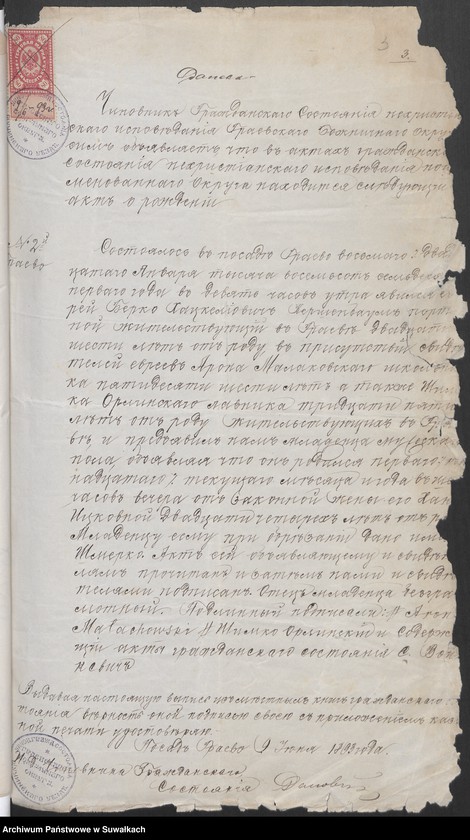 3.
Выпись
Чиновникъ Гражданскаго Состоянія нехристіан
скаго исповѣданія Граевскаго Божничнаго Округа
симъ объявляетъ что въ актахъ гражданскаго
состоянія нехристіанского исповѣданія пои
менованнаго Округа находится слѣдующій
актъ о рожденіи
№ 23
Граево
Состоялось въ посадѣ Граево восемнаго: Двад
цатаго Января тысяча восемьсотъ семьдеся
перваго года въ девять часовъ утра явился ев
рей Берко Хацкелевичъ порт
ной жительствующій въ Граевѣ двадцати
шести лѣтъ отъ роду въ присутствіи свидѣ
телей евреевъ Арона Малаховскаго школьни
ка пятидесяти шести лѣтъ а также Шим
ка Орлинскаго лавника тридцати пяти
лѣтъ отъ роду жительствующихъ въ Гра
вѣ, и предъявилъ намъ младенца мужска
пола объявляя что онъ родился перваго:
надцатаго текущаго мѣсяца и года въ
часовъ вечера отъ законной жены его Хан
Ицковной двадцати четырехъ лѣтъ отъ ро
Младенцу сему при обрѣзаніи дано имя
Шмерко. Актъ сей объявляющему и свидѣте
лямъ прочитанъ и затѣмъ нами и свидѣ
телями подписанъ. Отецъ младенца неграм
мотный. Подлинный подписали: // Aron
Malachowski // Шимко Орлинскій и Содержа
щій акты гражданскаго состоянія С. Вой
невичъ
Выдавая настоящую выпись изъ мѣстныхъ книгъ гражданскаго со
стоянія вѣрность оной подписью своею съ приложеніемъ казен
ной печати удостовѣряю.
Посадъ Граево 9 Іюня 1893 года.
Чиновникъ Гражданскаго
Состоянія
Archiwum Państwowe w Suwałkach